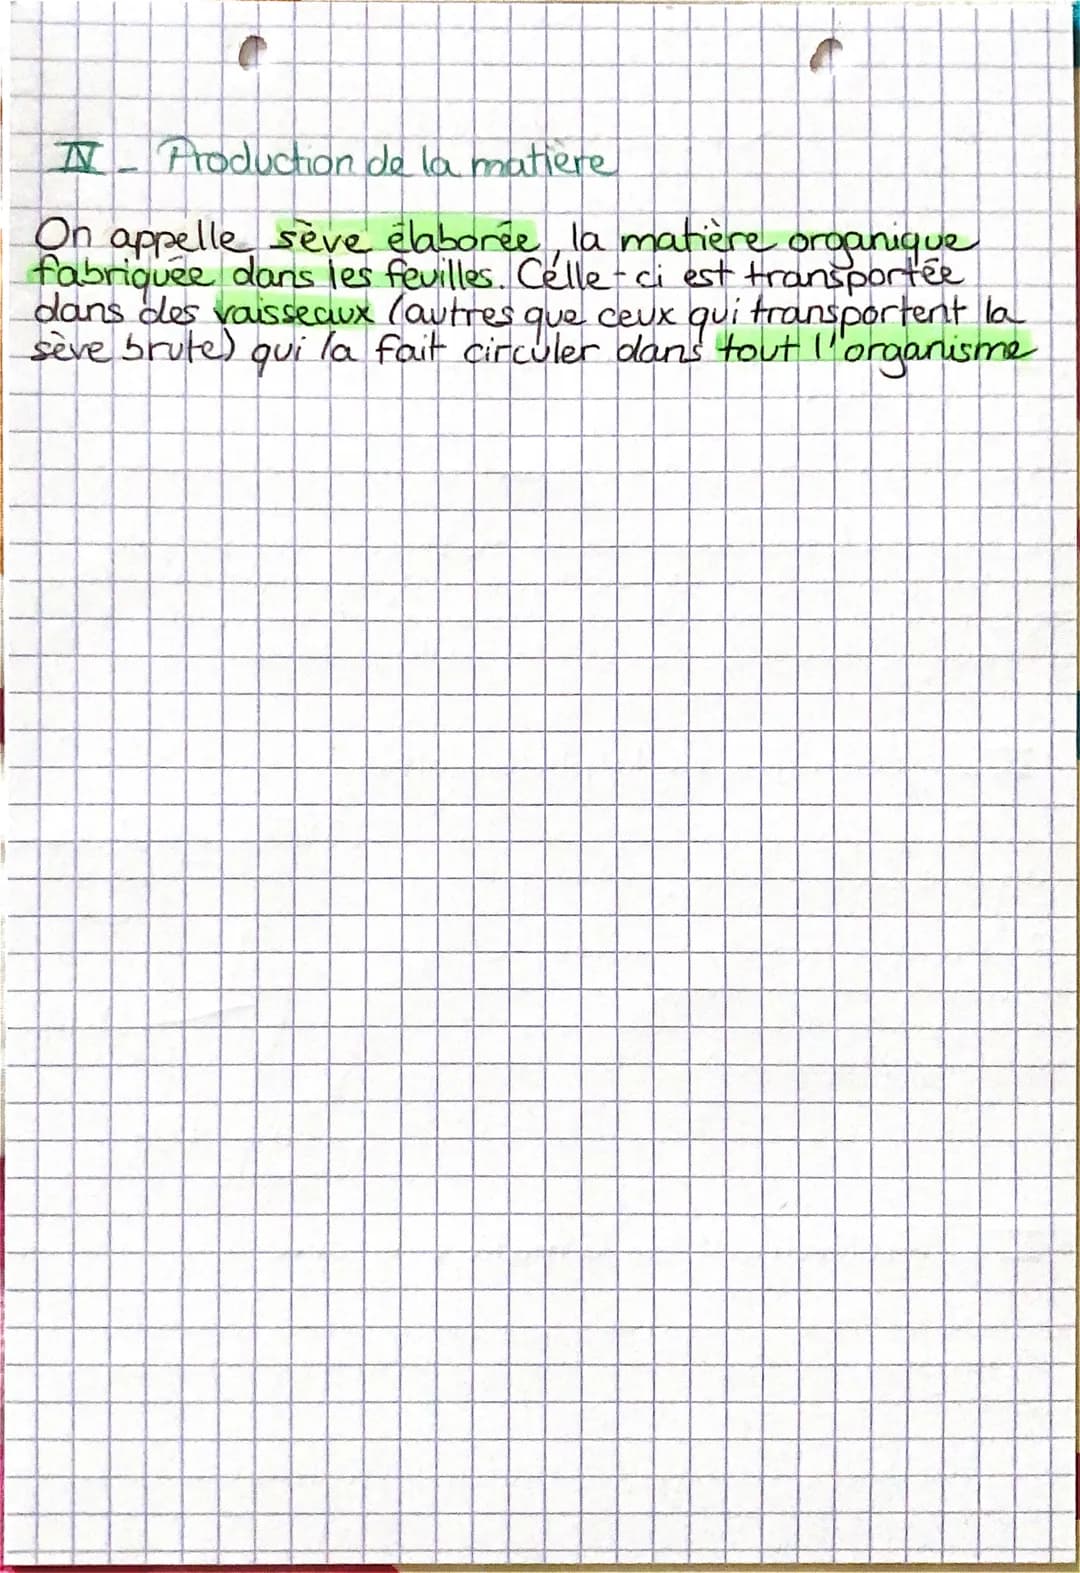 IV - Production de la matière
On appelle sève élaborée, la matière organique
fabriquée dans les feuilles. Celle-ci est transportée
dans des vaisseaux (autres que ceux qui transportent la
sève brute) qui la fait circuler dans tout l'organisme